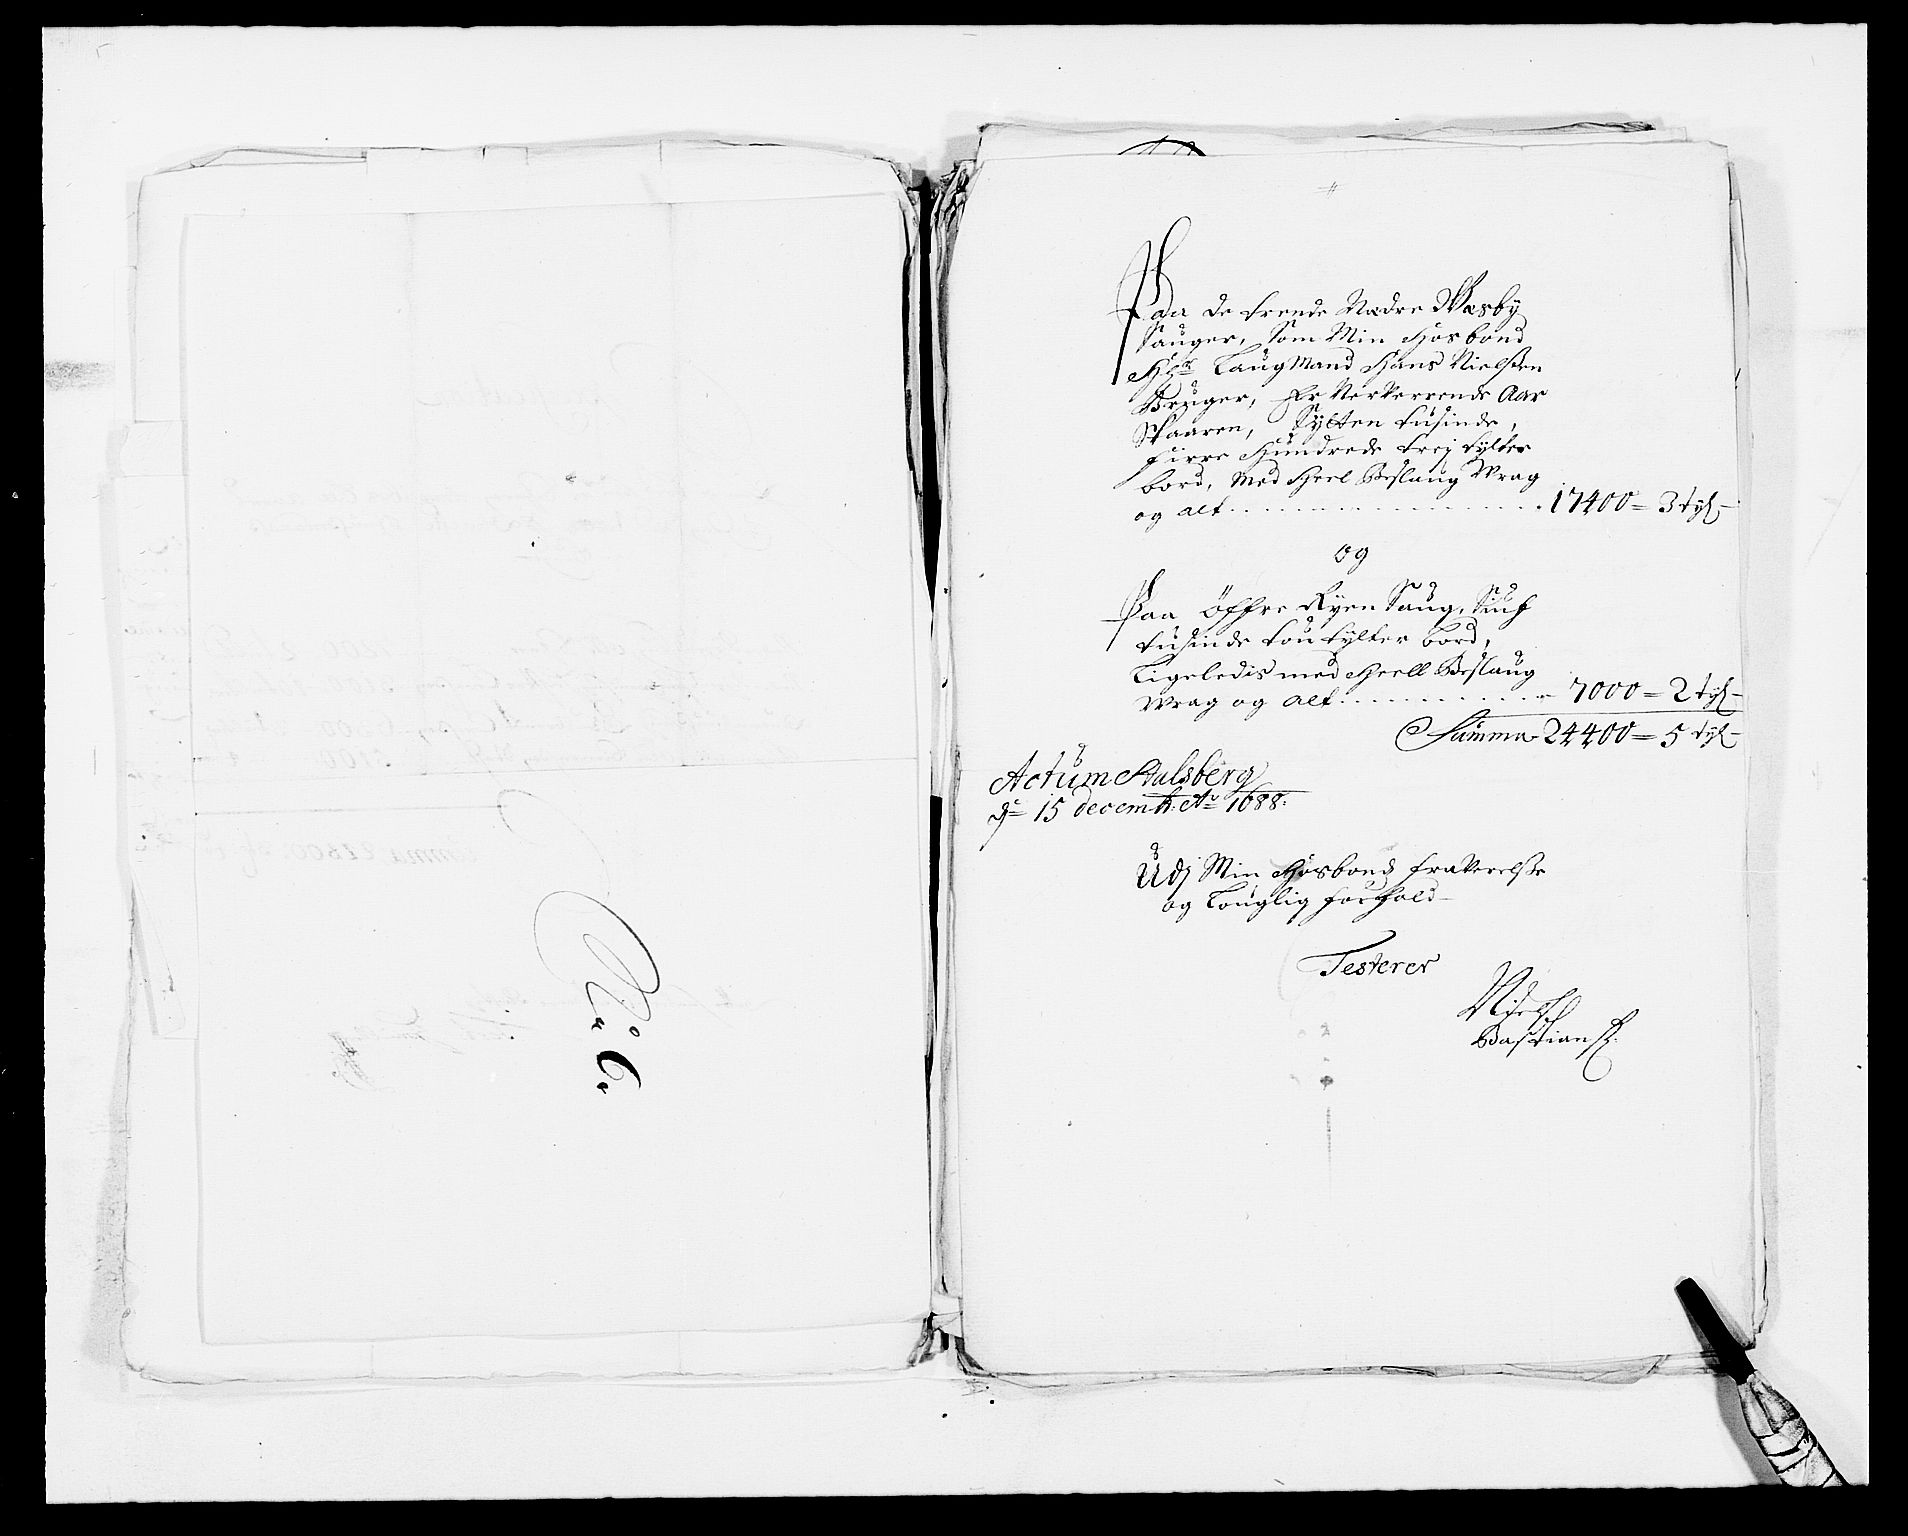 Paa de trende Nædre Næsby
Sauger, Som Min Hosbond
Hr Laugmand Hans Nielsßen
Bruger, Er Nerverende Aar
Skaaren, Sytten tusinde,
firre Hundrede trej tylter
bord, Med Heel Beslaug Wrag
og alt . . . . . . 17400 = 3 tyl
og
Paa Öffre Ryen Saug, Siuf
tusinde tou tylter bord,
Ligeledis med Heell Beslaug
Wrag og alt . . . . . . 7000 = 2 tyl
Summa 24400 = 5 tyl
Actum Stulsberg
dn 15 decemb: Ao 1688:
Udj Min Hosbonds fraverelsße
og Louglig forfald
Testerer
Niels
Bastians
No 6